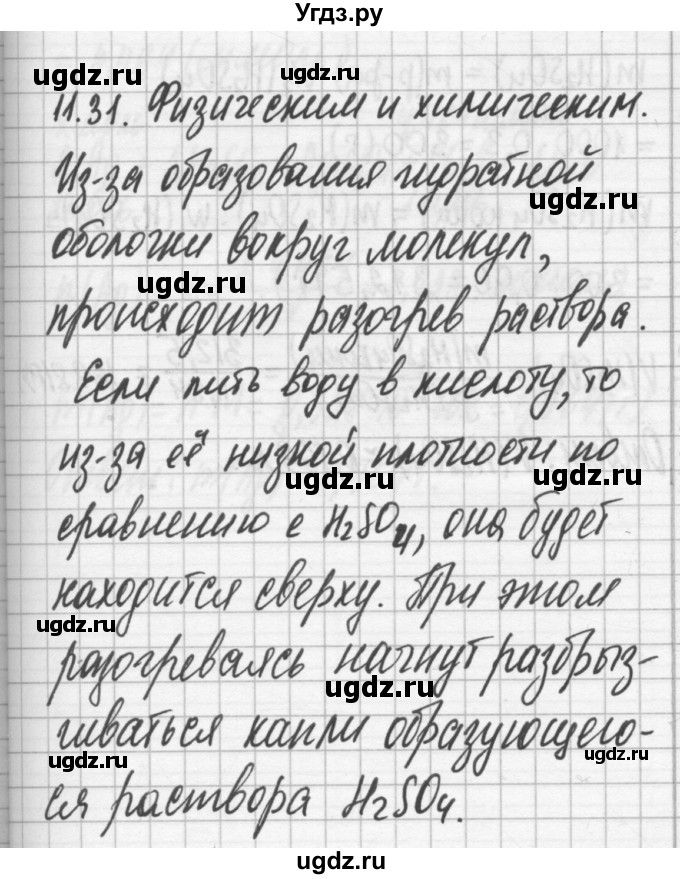 Угдз.ру
11.31. Физическим и химическим.
Из-за образования гидратной
оболочки вокруг молекул,
происходит разогрев раствора.
Если лить воду в кислоту, то
из-за её низкой плотности по
сравнению с H₂SO₄, она будет
находится сверху. При этом
разогреваясь начнут разбрыз-
гиваться капли образующего-
ся раствора H₂SO₄.
ugdz.ru
ugdz.ru
ugdz.ru
ugdz.ru
ugdz.ru
ugdz.ru
ugdz.ru
ugdz.ru
ugdz.ru
ugdz.ru
ugdz.ru
ugdz.ru
ugdz.ru
ugdz.ru